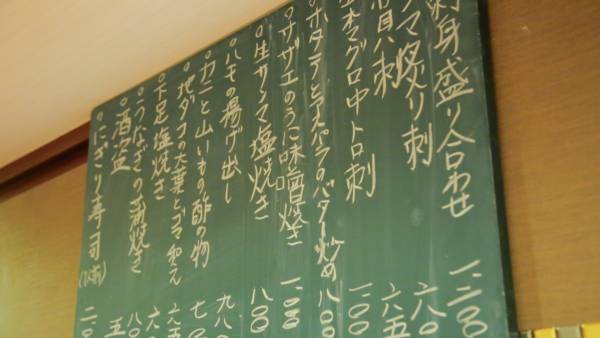 刺身盛り合わせ 一、二〇〇
マ炙り刺 六八〇
貝刺 六五
本マグロ中トロ刺 一、一〇〇
ホタテとアスパラのバター炒め 八〇〇
サザエのうに味噌焼き 一、〇〇〇
生サンマ塩焼き 八〇〇
ハモの揚げ出し 九八
カニと山いもの酢の物 七〇
地ダコの大葉とゴマ和え 六五
下足塩焼き 六
うなぎの蒲焼き 八
酒盗 五
にぎり寿司 二、〇